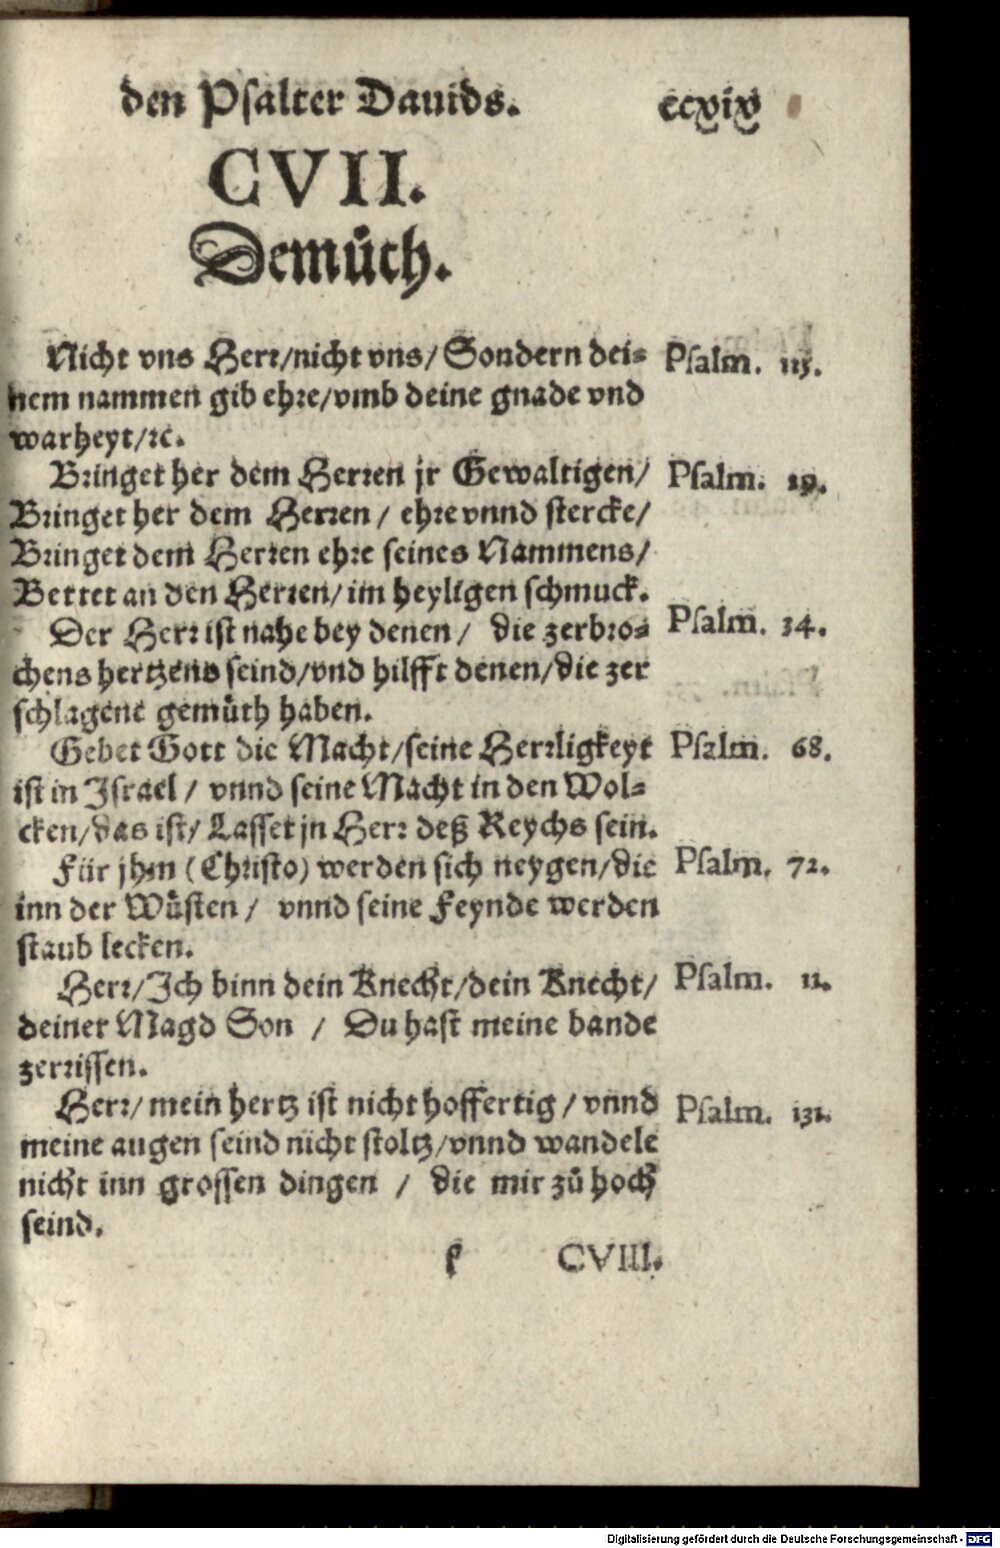 den Psalter Dauids. ccxix
CVII.
Demůth.
Nicht vns Herr/nicht vns/ Sondern dei-
nem nammen gib ehre/vmb deine gnade vnd
warheyt/ꝛc.
Psalm. 115.
Bringet her dem Herren jr Gewaltigen/
Bringet her dem Herren / ehre vnnd stercke/
Bringet dem Herren ehre seines Nammens/
Bettet an den Herren/ im heyligen schmuck.
Psalm. 29.
Der Herr ist nahe bey denen / die zerbro-
chens hertzens seind/vnd hilfft denen/die zer
schlagene gemůth haben.
Psalm. 34.
Gebet Gott die Macht/seine Herrligkeyt
ist in Israel / vnnd seine Macht in den Wol-
cken/das ist/ Lasset jn Herr deß Reychs sein.
Psalm. 68.
Für jhm (Christo) werden sich neygen/die
inn der Wůsten / vnnd seine Feynde werden
staub lecken.
Psalm. 72.
Herr/Ich binn dein Knecht/dein Knecht/
deiner Magd Son / Du hast meine bande
zerrissen.
Psalm. 11.
Herr/ mein hertz ist nicht hoffertig / vnnd
meine augen seind nicht stoltz/vnnd wandele
nicht inn grossen dingen / die mir zů hoch
seind.
Psalm. 131.
f CVIII.
Digitalisierung gefördert durch die Deutsche Forschungsgemeinschaft - DFG